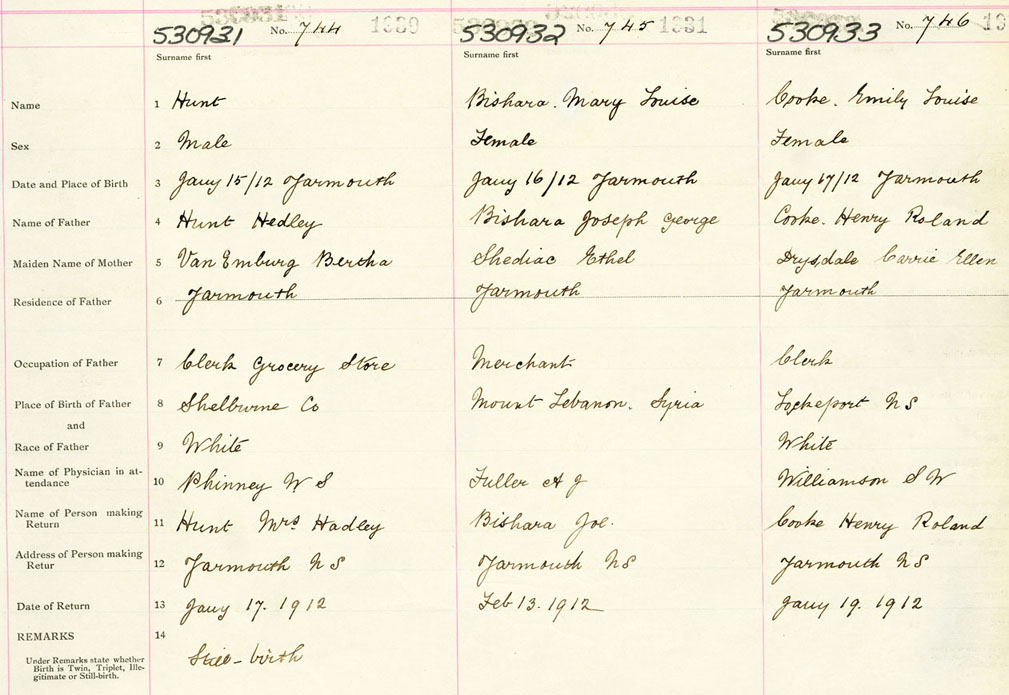 530931 No. 744 1930 530932 No. 745 1931 530933 No. 746
Surname first Surname first Surname first
Name 1 Hunt Bishara. Mary Louise Cooke. Emily Louise
Sex 2 Male Female Female
Date and Place of Birth 3 Jany 15/12 Yarmouth Jany 16/12 Yarmouth Jany 17/12 Yarmouth
Name of Father 4 Hunt Hedley Bishara Joseph George Cooke. Henry Roland
Maiden Name of Mother 5 Van Emburg Bertha Shediac Ethel Drysdale Carrie Ellen
Residence of Father 6 Yarmouth Yarmouth Yarmouth
Occupation of Father 7 Clerk Grocery Store Merchant Clerk
Place of Birth of Father 8 Shelburne Co Mount Lebanon. Syria Lockeport N S
and
Race of Father 9 White White
Name of Physician in at-
tendance 10 Phinney W S Fuller A J Williamson S W
Name of Person making
Return 11 Hunt Mrs Hadley Bishara Joe. Cooke Henry Roland
Address of Person making
Retur 12 Yarmouth N S Yarmouth N S Yarmouth N S
Date of Return 13 Jany 17. 1912 Feb 13. 1912 Jany 19. 1912
REMARKS 14
Under Remarks state whether
Birth is Twin, Triplet, Ille-
gitimate or Still-birth.
Still-birth